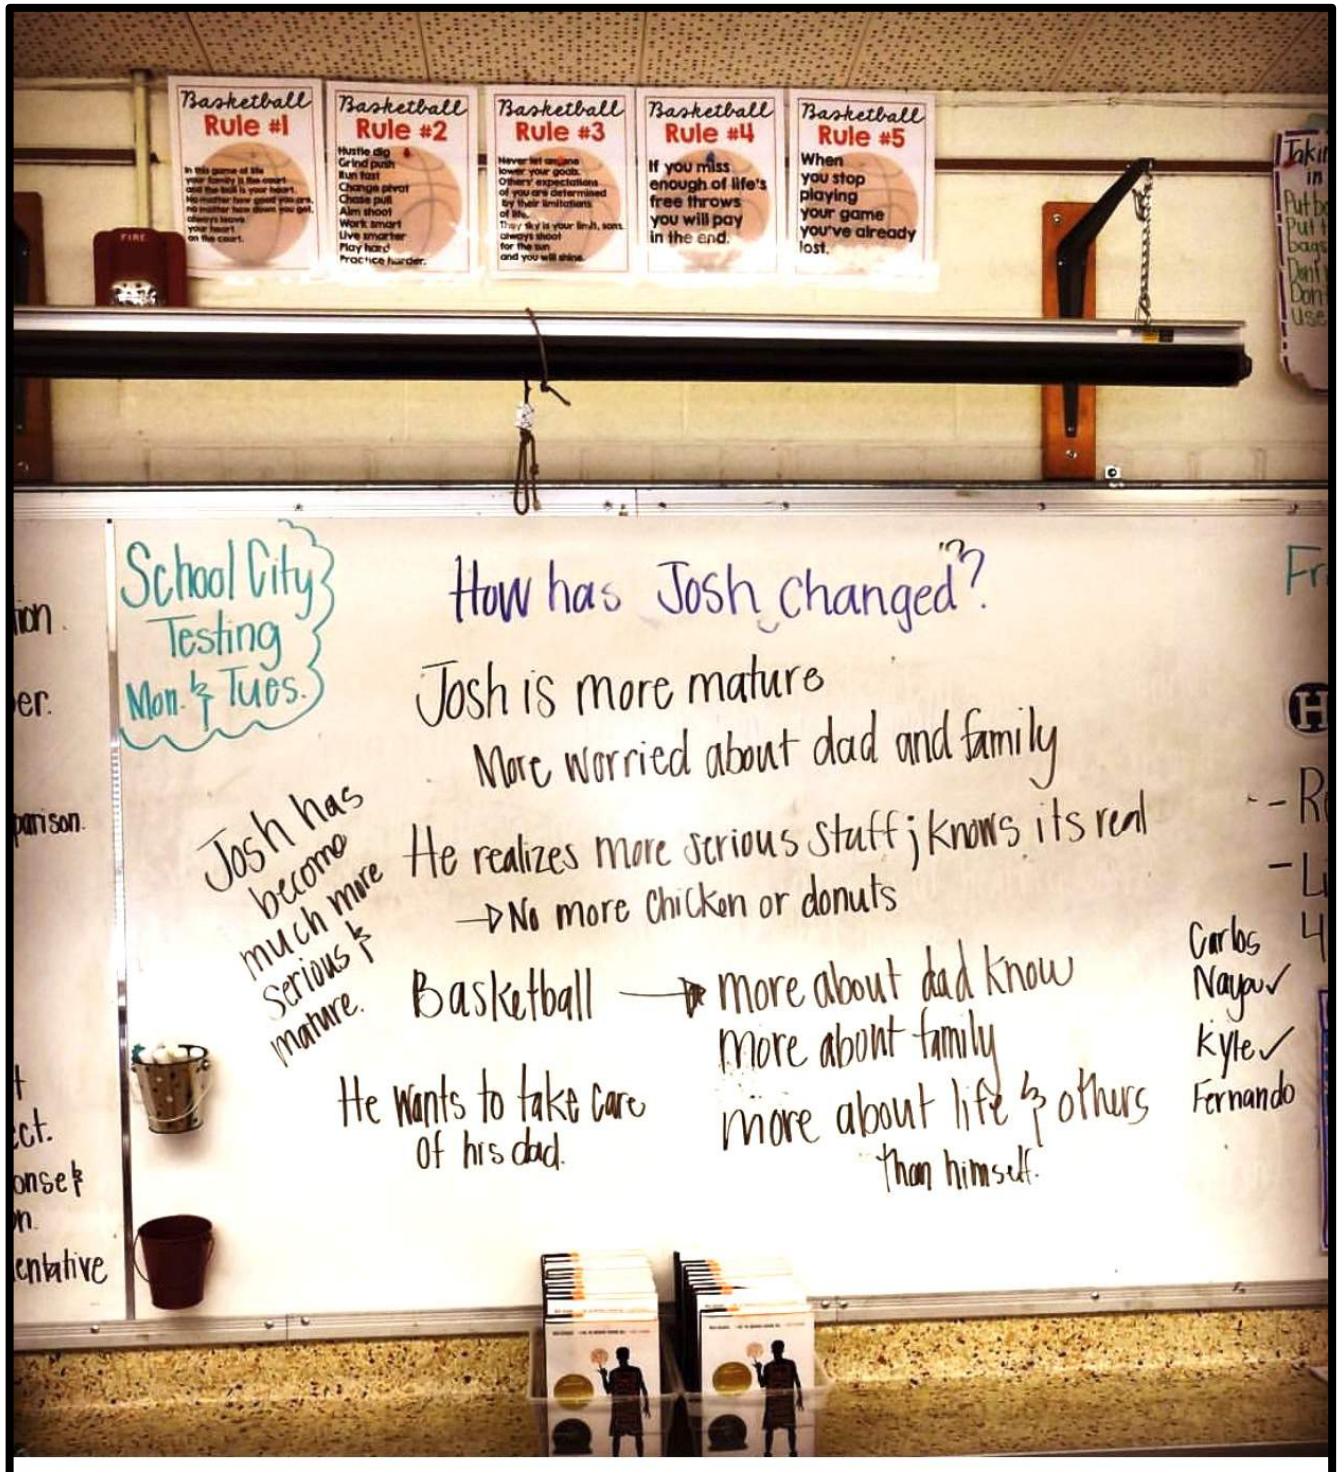 Basketball
Rule #1
In this game of life
your family is the court
and the ball is your heart.
No matter how good you are,
no matter how down you get,
always leave
your heart
on the court.
Basketball
Rule #2
Hustle dig
Grind push
Run fast
Change pivot
Chase pull
Aim shoot
Work smart
Live smarter
Play hard
Practice harder.
Basketball
Rule #3
Never let anyone
lower your goals.
Others' expectations
of you are determined
by their limitations
of life.
They sky is your limit, sons.
always shoot
for the sun
and you will shine.
Basketball
Rule #4
If you miss
enough of life's
free throws
you will pay
in the end.
Basketball
Rule #5
When
you stop
playing
your game
you've already
lost.
FIRE
Takin
in
Put b
Put t
bags
Don't
Don
use
School City
Testing
Mon. & Tues.
How has Josh changed?
Josh is more mature
More worried about dad and family
He realizes more serious stuff; knows its real
→ No more chicken or donuts
Josh has
become
much more
serious &
mature.
Basketball → more about dad know
more about family
more about life & others
than himself.
He wants to take care
of his dad.
Carlos
Kyle ✓
Fernando
Fr
H
- R
- Li
4
ion.
er.
parison.
t
ect.
onse &
n.
entative